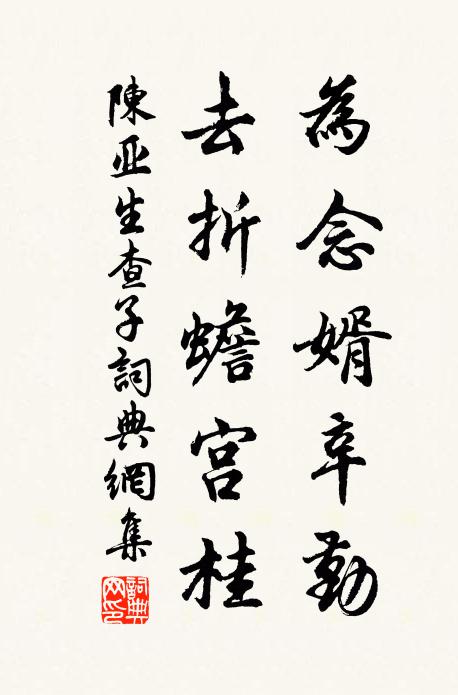 為念婿辛勤
去折蟾宮桂
陳亚生查子詞典網集
詞典網印